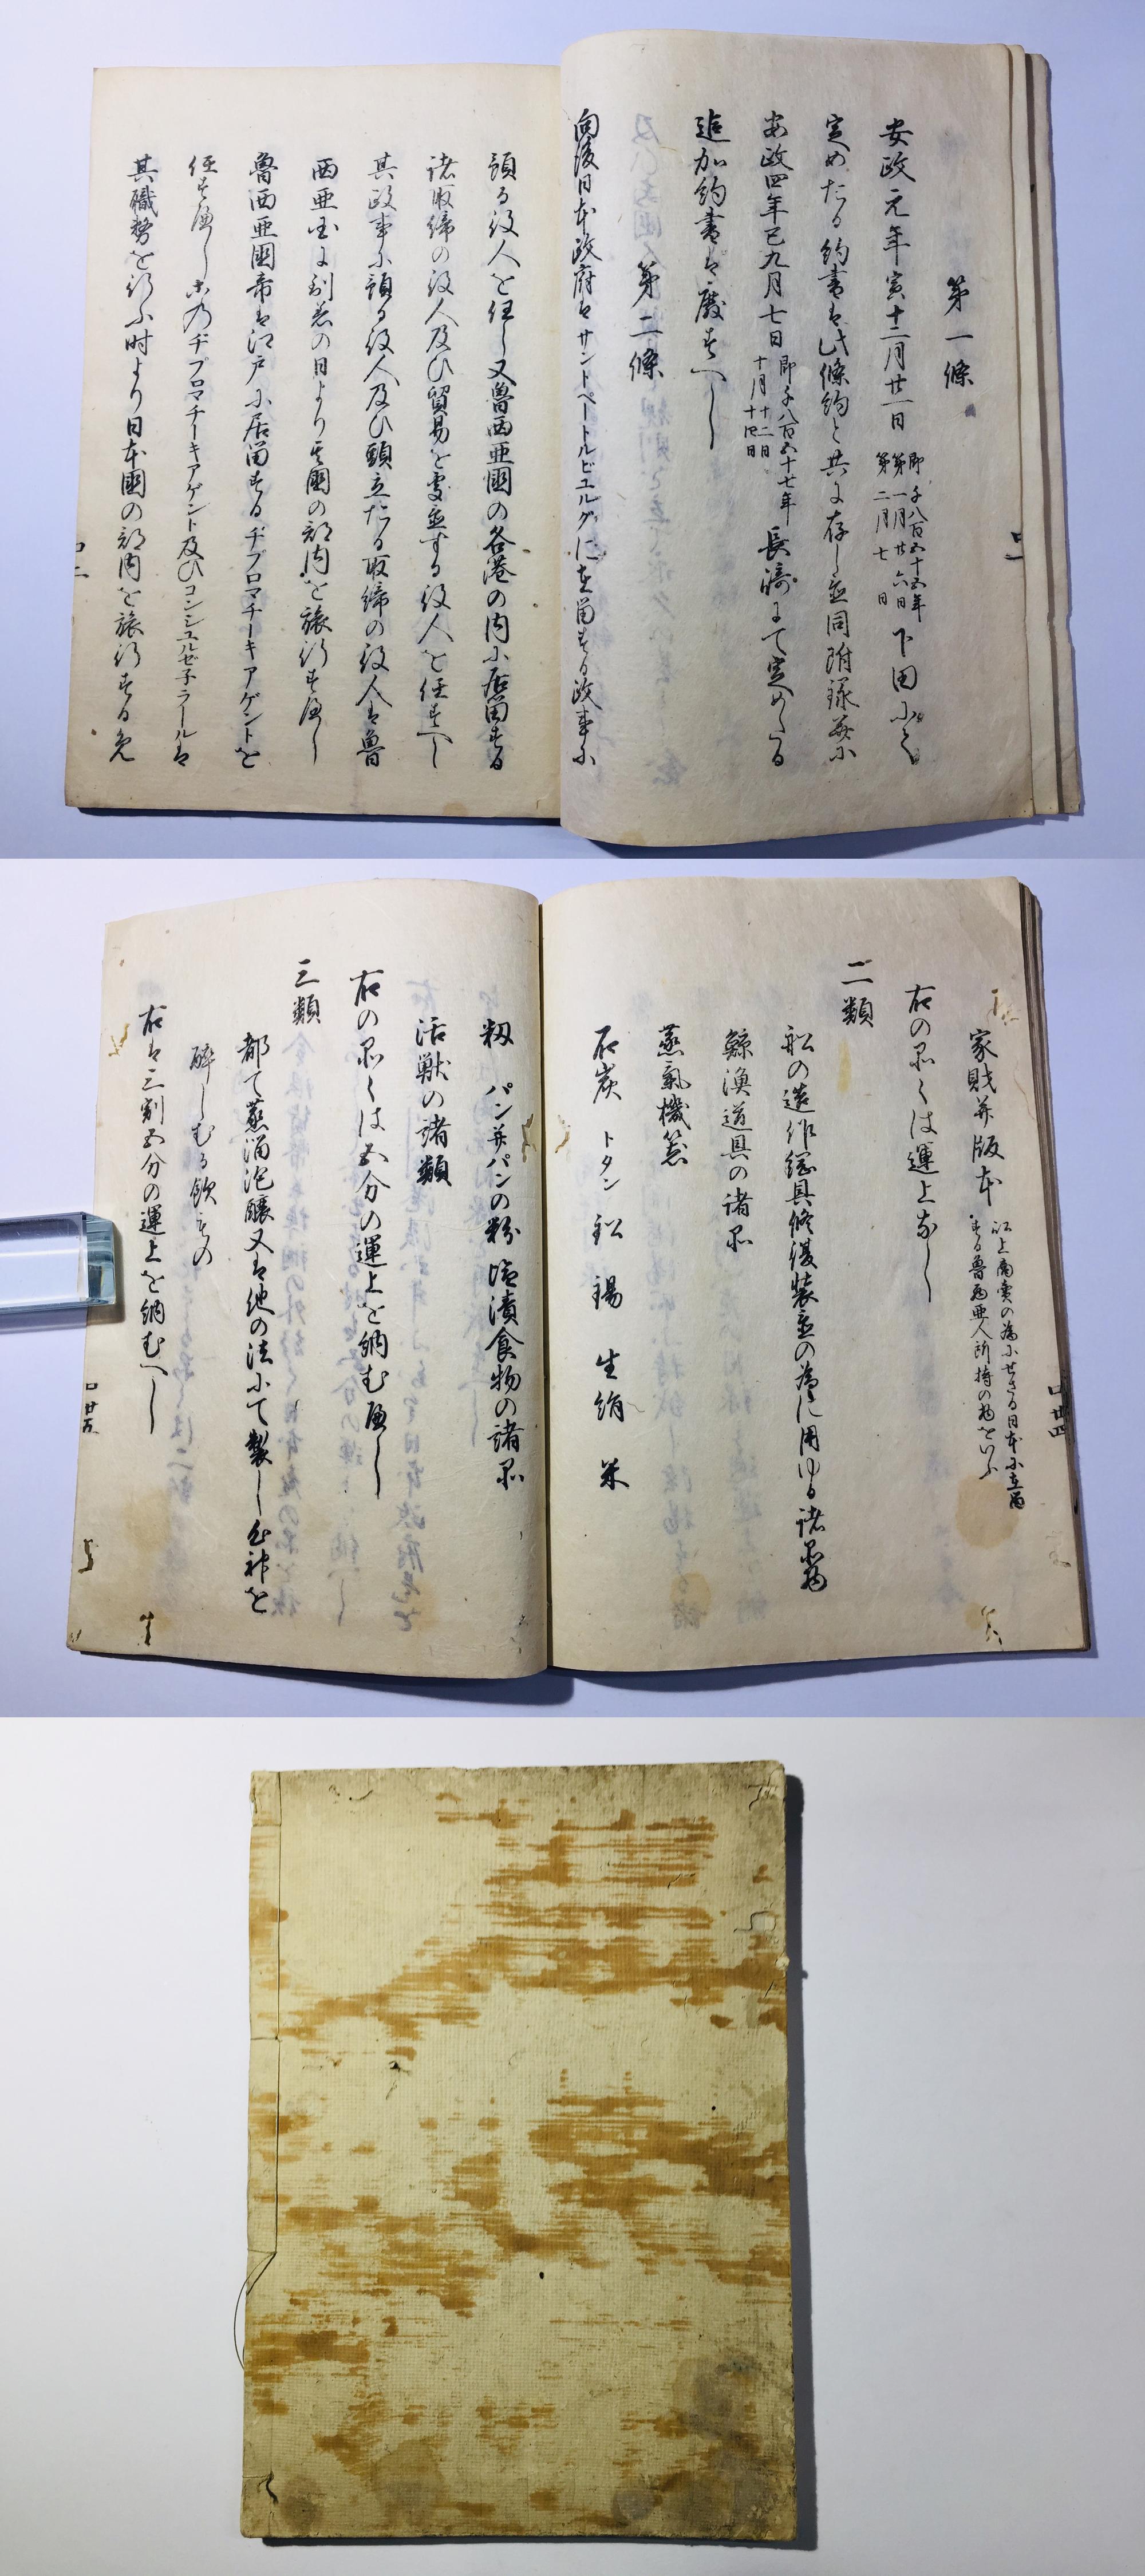 第一條
安政元年寅十二月廿一日 即千八百五十五年第一月廿六日第二月七日 下田にて
定めたる約書は此條約と共に存し並同附録並に
安政四年巳九月七日 即千八百五十七年十月十二日十月廿四日 長濤にて定めたる
追加約書は廢すへし
第二條
向後日本政府はサントペートルビユルグに在留する政事に
預る役人を任し又魯西亜國の各港の内に居留する
諸取締の役人及ひ貿易を處置する役人を任すへし
其政事に預る役人及ひ頭立たる取締の役人は魯
西亜国に到着の日より其國の部内を旅行すへし
魯西亜國帝は江戸に居留するヂプロマチーキアゲントを
任すへし
ヂプロマチーキアゲント及ひコンシユルゼネラールは
其職務を行ふ時より日本國の部内を旅行する免
口二
家財并版本 以上商賣の為にせさる日本に在留する魯西亜人所持の物をいふ
右の品くは運上なし
二類
船の造作綱具修復装置の為に用ゆる諸品物
鯨漁道具の諸品
蒸氣機器
石炭 トタン 鉛 錫 生絹 米
口廿四
籾 パン并パンの粉 塩漬食物の諸品
活獣の諸類
右の品くは五分の運上を納むへし
三類
都て蒸溜泡醸又は他の法にて製し精神を
酔しむる飲もの
右は三割五分の運上を納むへし
口廿五